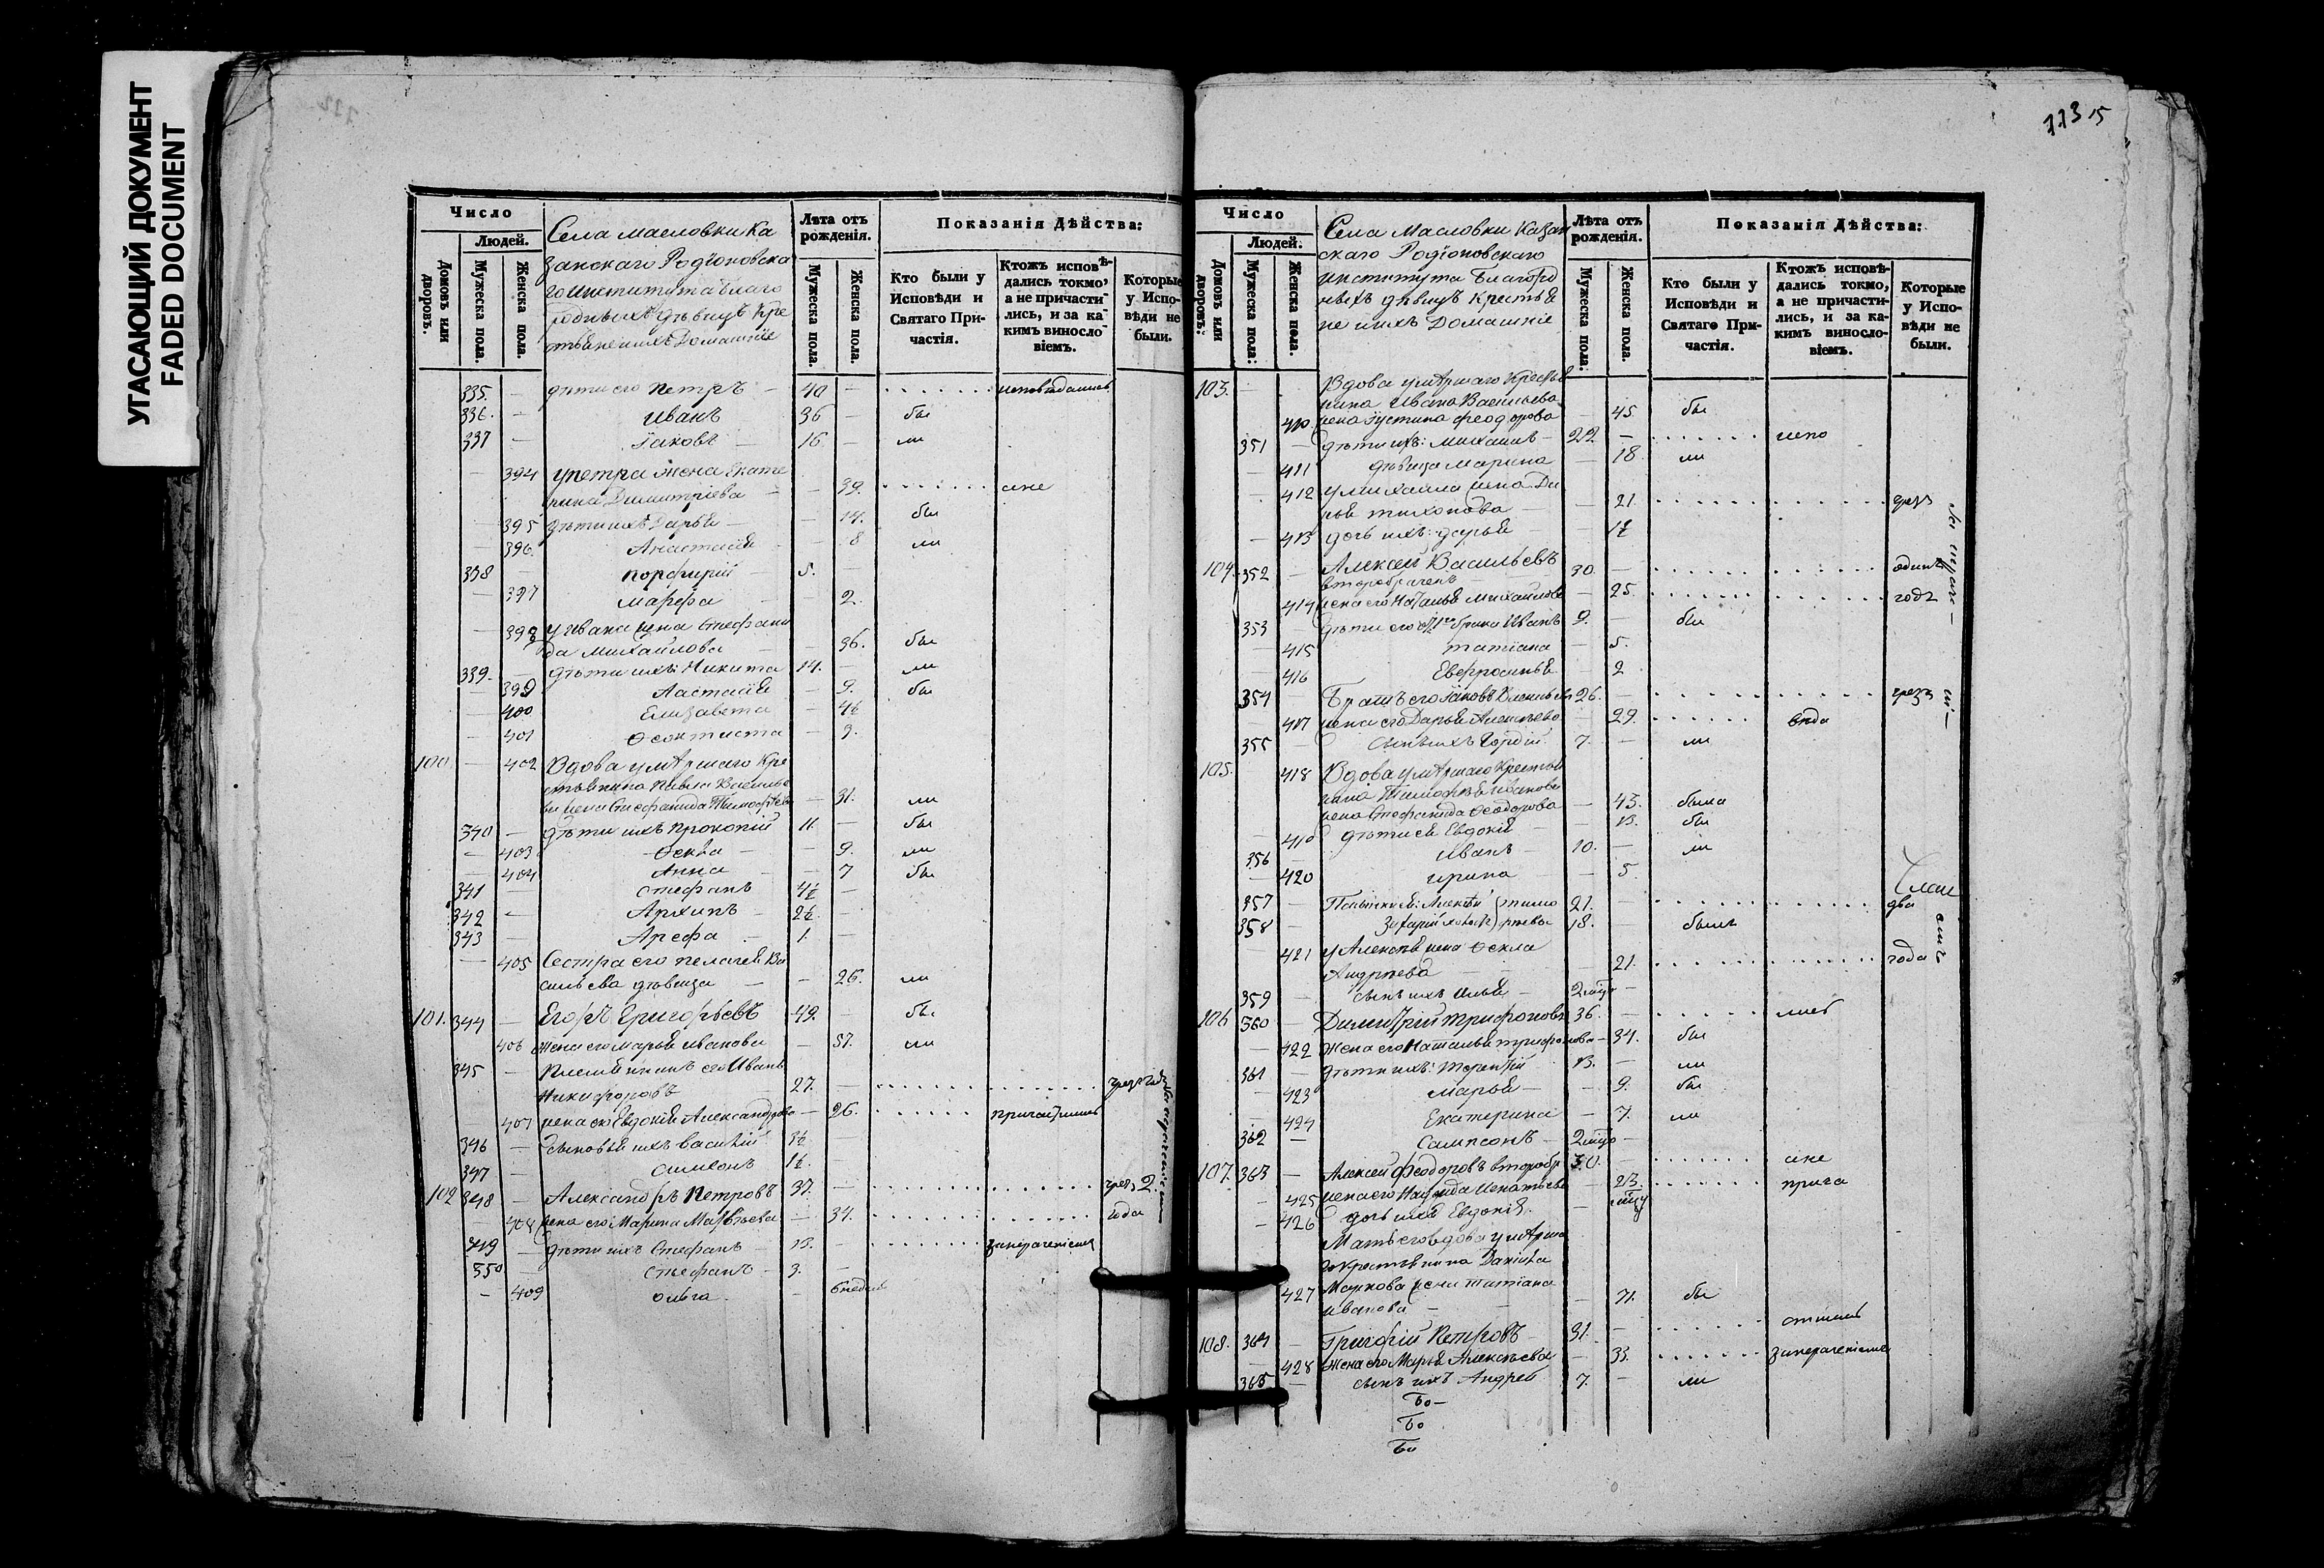 УГАСАЮЩИЙ ДОКУМЕНТ
FADED DOCUMENT
Число
Людей.
Домовъ или дворовъ.
Мужеска пола.
Женска пола.
Села Масловки Ка
занскаго Родіоновска
го Института Благо
родныхъ дѣвицъ Кре
стьяне и ихъ Домашніе
Лѣта отъ рожденія.
Мужеска пола.
Женска пола.
Показанія Дѣйства:
Кто были у Исповѣди и Святаго Причастія.
Ктожъ исповѣдались токмо, а не причастились, и за какимъ винословіемъ.
Которые у Исповѣди не были.
335. — дѣти его Петръ — 40 — исповѣдались
336. — Иванъ 36 — бы
337 — Іаковъ — 16. — ли
— 394 у Петра жена Екате
рина Димитріева — — 39. ане
— 395 дѣти ихъ Дарья — — 14. бы
— 396. Анастасія — 8 ли
338 — Порфирій — 5. —
— 397 Марфа — 2.
— 398 у Ивана жена Стефани
да Михайлова — — 36. бы
339. — дѣти ихъ: Никита 14. — ли
— 399 Аастасія — 9. бы
— 400 Елизавета — 4½
— 401 Феоктиста — 3.
100. — 402 Вдова умѣршаго Кре
стьянина Павла Василье
ва жена Стефанида Тимофѣева — 31. ли
340 — дѣти ихъ Прокопій 11. — бы
— 403 Фекла — — 9. ли
— 404 Анна — — 7 бы
341 — Стефанъ 4½ —
342 — Архипъ — 2½ —
343 — Арефа — 1. —
— 405 Сестра его Пелагея Ва
сильева дѣвица — — 26. ли
101. 344 — Егоръ Григорьевъ 49. — бы
406 жена его Марья Иванова — 51. ли
345 — Племянникъ его Иванъ
Никифоровъ 27. —
407 жена его Евдокія Александрова — 26. причастились
346 — сыновья ихъ Василій 3½ —
347 — Симеонъ 1½. —
102 348 — Александръ Петровъ 37. — чрез 2.
— 408 жена его Марина Матвѣева — 34. года
349 — дѣти ихъ Стефанъ — 13. —
350 — Стефанъ — 3. —
— 409 Ольга — 6 недѣль
113 15
Число
Людей.
Домовъ или дворовъ:
Мужеска пола:
Женска пола.
Села Масловки Казан
скаго Родіоновскаго
института Благород
ныхъ дѣвицъ Крестья
не и ихъ Домашніе
Лѣта отъ рожденія.
Мужеска пола:
Женска пола.
Показанія Дѣйства:
Кто были у Исповѣди и Святаго Причастія.
Ктожъ исповѣдались токмо, а не причастились, и за какимъ винословіемъ.
Которые у Исповѣди не были.
103. — Вдова умѣршаго Крестья
нина Ивана Васильева
410 жена Іустина Феодорова — 45 бы
351 — дѣти ихъ: Михаилъ — 22 — испо
— 411 дѣвица Марина — 18. ли
— 412 у Михаила жена Да
рья Тихонова — 21. чрезъ
— 413 дочь ихъ: Дарья — 1½
104. 352 — Алексей Васильевъ
второбраченъ 30. — одинъ
414 жена его Наталья Михайлова — 25. годъ
353 дѣти его отъ 1го брака Иванъ 9. — бы
— 415 Татіана — 5.
— 416 Евфросинья — 2
354 — Братъ его Іаковъ Васильевъ 26. — чрезъ
— 417 жена его Дарья Алексѣева — 29.
355 — сынъ ихъ Гордій 7. — ли
105. 418 Вдова умѣршаго Крестья
нина Тимофѣя Иванова
жена Стефанида Феодорова — 43. была
— 419 дѣти ея Евдокія — 13. бы
356 — Иванъ — 10. — ли
— 420 Ирина — 5.
357 — Алексѣй 21. — два
358 — 18. — былъ
— 421 у Алексѣя жена Фекла
Андреева — — 21. года
359 — сынъ ихъ Илья —
106 360 — Димитрій Трифоновъ 36. —
— 422 жена его Наталья Трифонова — 34. бы
361 — дѣти ихъ: Терентій 13. — ли
— 423 Марья — — 9. бы
— 424 Екатерина — 7. ли
362 — Сампсонъ —
107. 363 — Алексей Феодоровъ второбр 30. — ане
— 425 — 23. прича
— 426 дочь ихъ Евдокія. —
Мать его вдова умѣрша
го крестьянина Даніила
427 Маркова жена Татіана
Иванова — — — 71. бы
108. 364 — Григорій Петровъ 31. —
— 428 жена его Марья Алексѣева — 33.
365 — сынъ ихъ Андрей 7. — ли